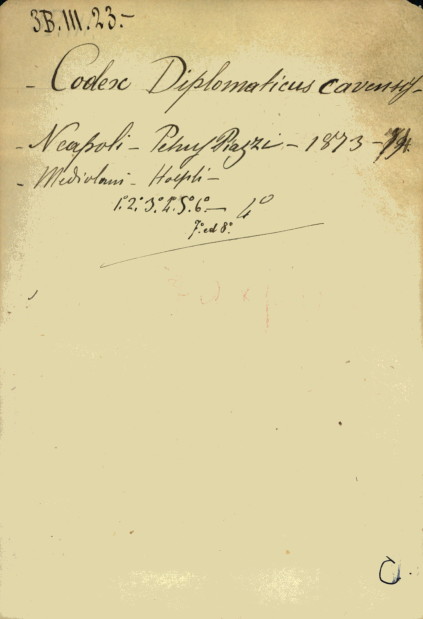 3B.III.23.-
- Codex Diplomaticus cavensis -
- Neapoli - Petrus Piazzi - 1873 -
- Mediolani - Hoepli -
1.° 2.° 3.° 4.° 5.° 6.° — 4°
7.° ed 8.°
C